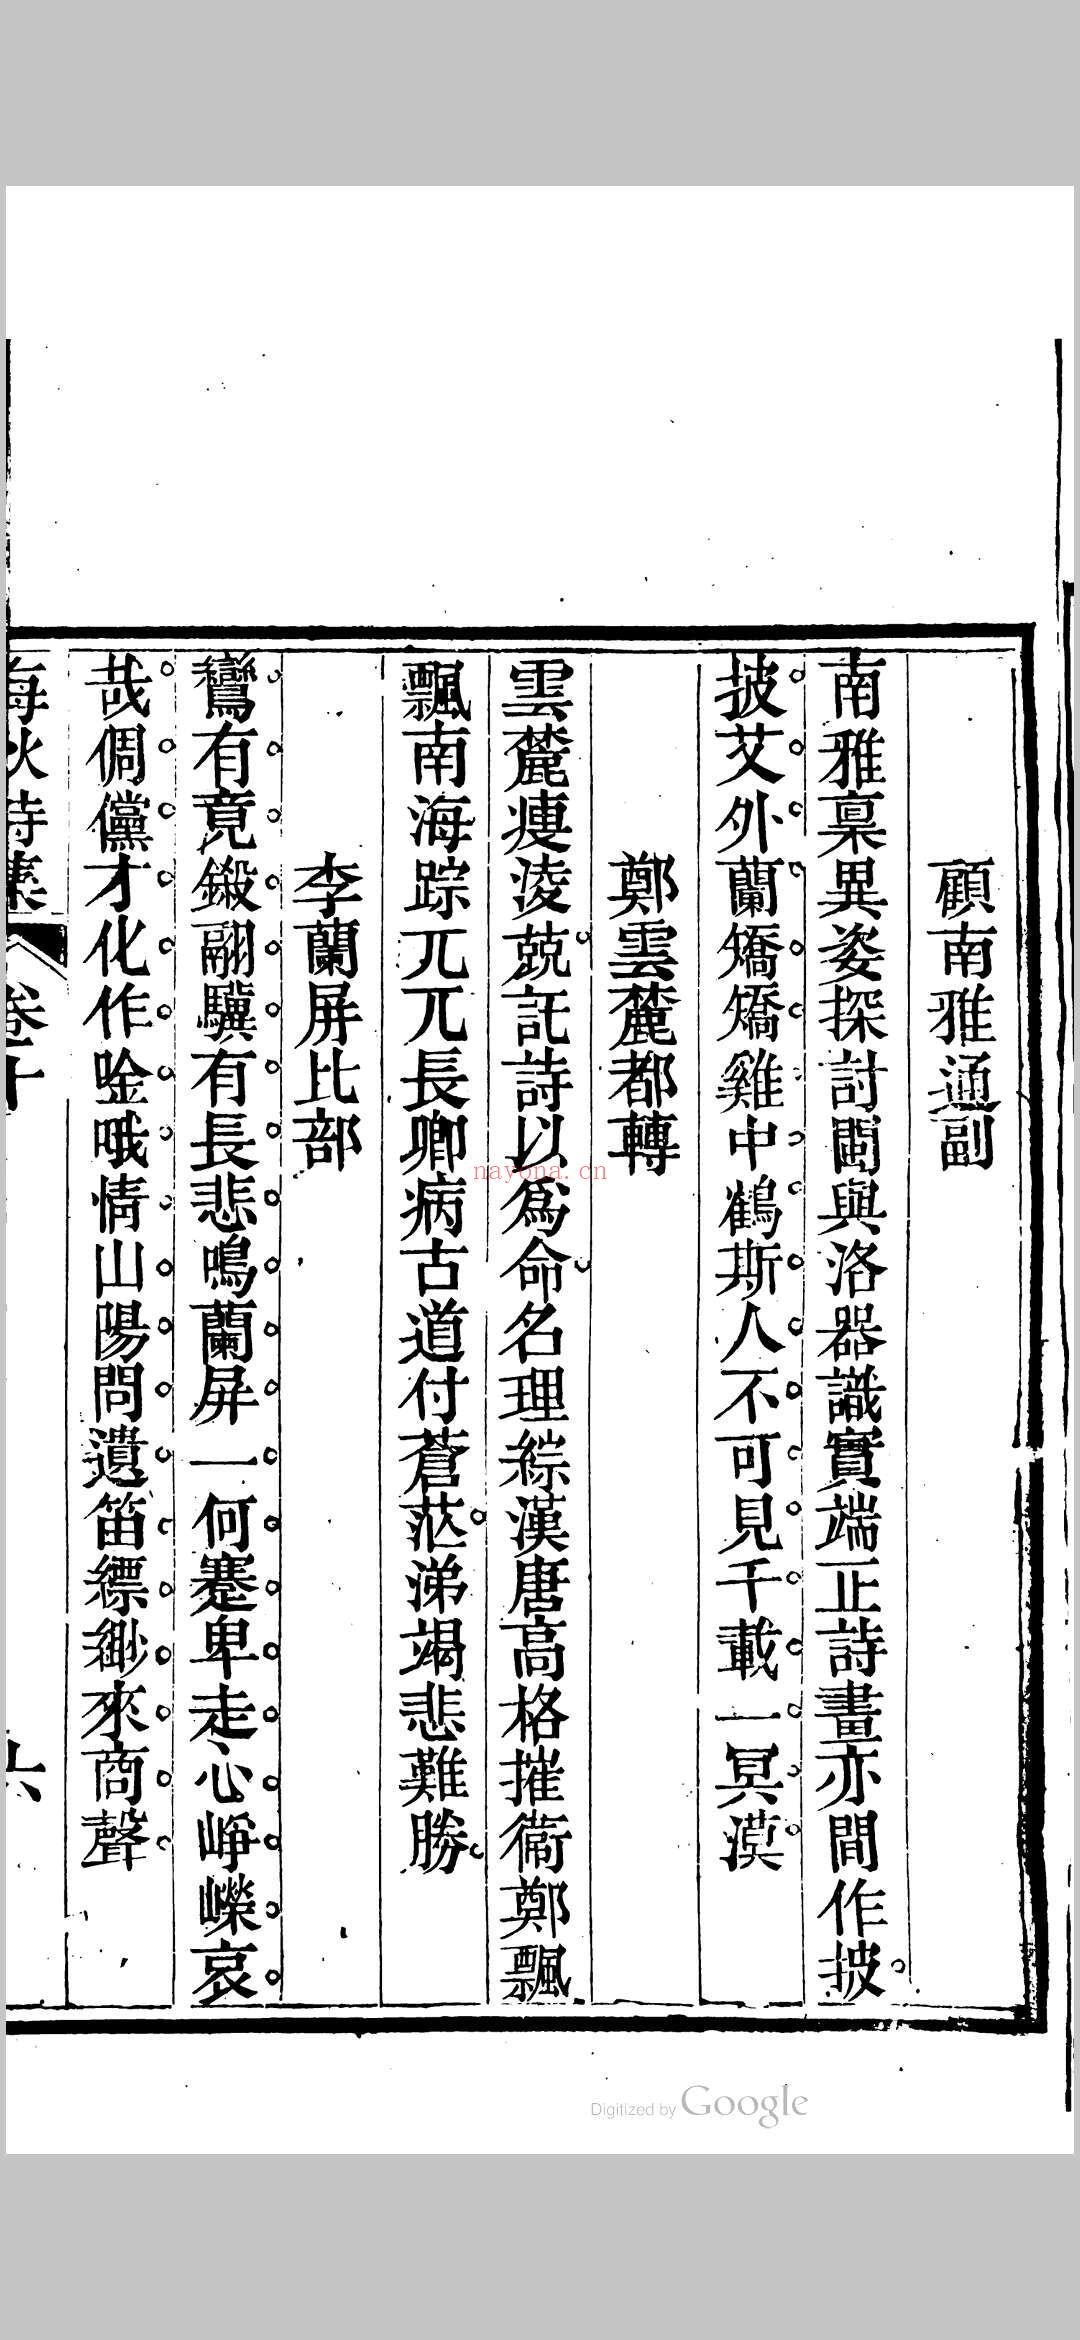 顧南雅通副
南雅稟異姿探討閩與洛器識實端正詩畫亦間作披
披艾外蘭矯矯雞中鶴斯人不可見千載一冥漠
鄭雲麓都轉
雲麓瘦淩兢託詩以爲命名理綜漢唐高格摧衙鄭飄
飄南海踪兀兀長卿病古道付蒼茫涕竭悲難勝
李蘭屏比部
鸞有竟鎩翮驥有長悲鳴蘭屏一何蹇卑走心崢嶸哀
哉倜儻才化作唫哦情山陽問遺笛縹緲來商聲
海秋詩集 卷十 六
nayona.cn
Digitized by Google